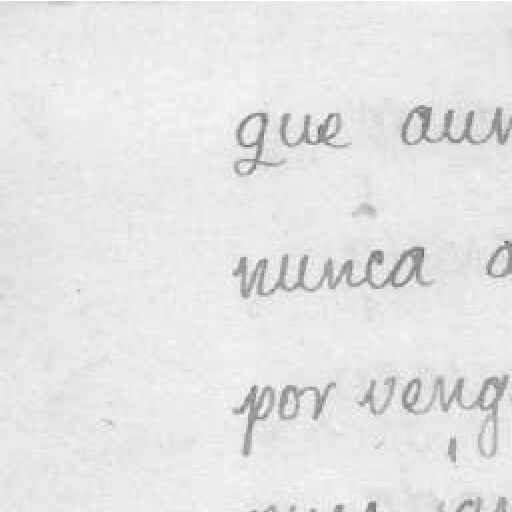 que aun
nunca a
por veng